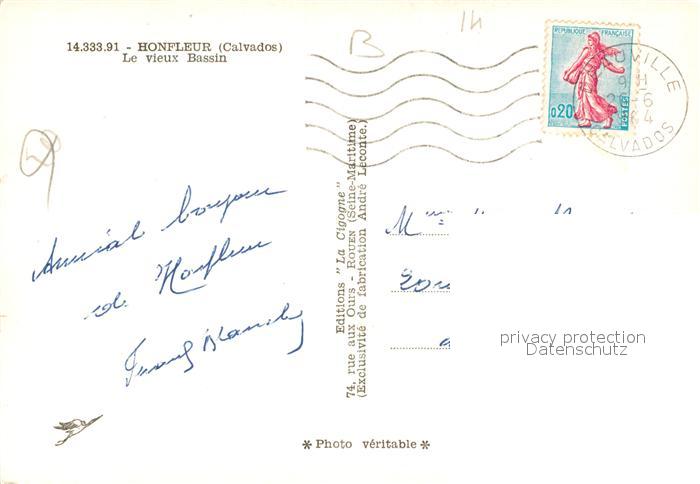 14.333.91 - HONFLEUR (Calvados)
Le vieux Bassin
B
14
REPUBLIQUE FRANÇAISE
0,20
POSTES
9 H
6
CALVADOS
Amical bonjour
de Honfleur
Editions "La Cigogne"
74, rue aux Ours - ROUEN (Seine-Maritime)
(Exclusivité de fabrication André Leconte.)
Mme
privacy protection
Datenschutz
* Photo véritable *